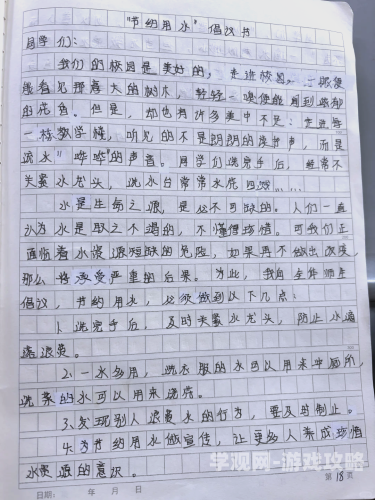 "节约用水"倡议书
同学们:
我们的校园是美好的,走进校园,一眼便
能看见那高大的树木,轻轻一嗅便能闻到浓郁
的花香。但是,却也有许多美中不足:走进每
一栋教学楼,听见的不是朗朗的读书声,而是
流水"哗哗"的声音。同学们洗完手后,经常不
关紧水龙头,洗水台常常水流四溅……
水是生命之源,是必不可缺的。人们一直
认为水是取之不竭的,不懂得珍惜。可我们正
面临着水资源短缺的危险,如果再不做出改变,
那么将承受严重的后果。为此,我向全体师生
倡议,节约用水,必须做到以下几点:
1.洗完手后,及时关紧水龙头,防止水通
流浪费。
2.一水多用,洗衣服的水可以用来冲厕所,
洗菜的水可以用来浇花。
3.发现别人浪费水的行为,要及时制止。
4.为节约用水做宣传,让更多人养成珍惜
水资源的意识。
日期: 年 月 日 第 18 页
学观网-游戏攻略